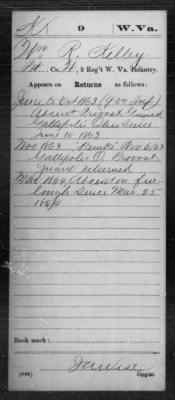 K 9 W.Va.
Wm R. Kelley
Pvt., Co. H, 9 Reg't W. Va. Infantry.
Appears on Returns as follows:
June to Oct 1863
Absent Provost Guard
Gallipolis Ohio Since
June 10 1863
Nov 1863 Nov 6/63
Gallipolis O. Provost
Guard returned
Mar 1864 Absent on fur
lough Since Mar 25
1864
Book mark:
(546) Copyist.